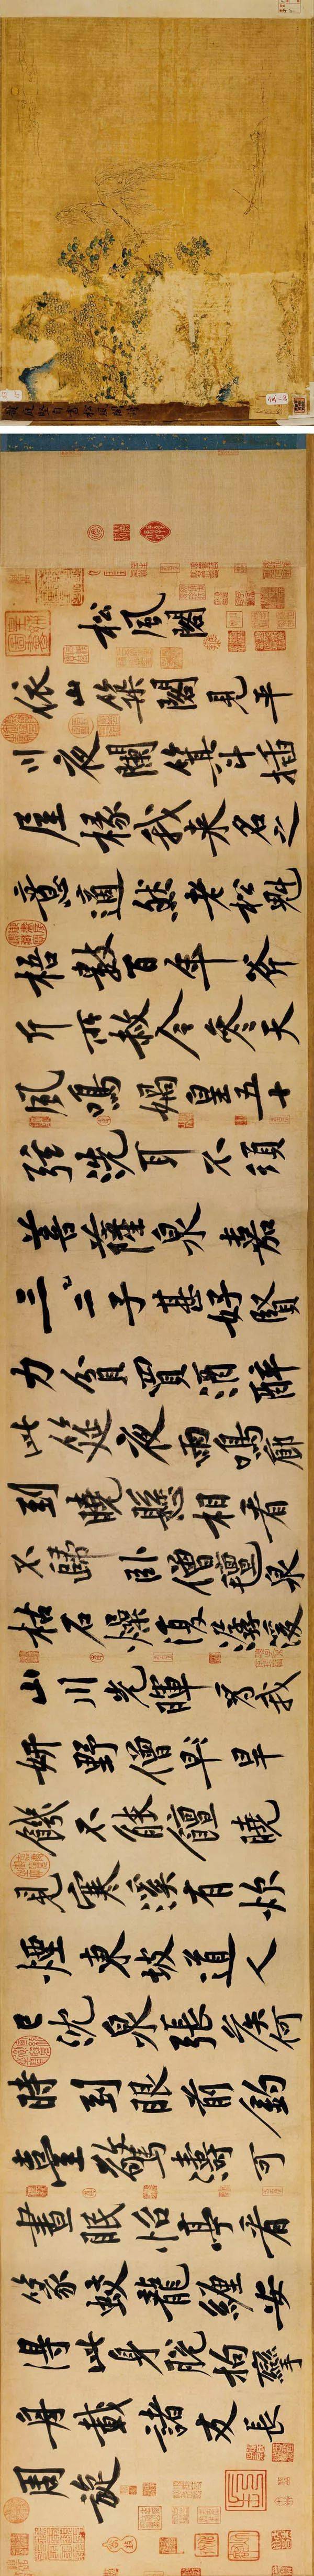 黃庭堅自書松風閣詩
松風閣
依山築閣見平
川夜闌箕斗插
屋椽我来名之
意適然老松魁
梧數百年斧
斤所赦今參天
風鳴媧皇五十
弦洗耳不須
菩薩泉嘉
三二子甚好賢
力貧買酒醉
此筵夜雨鳴廊
到曉懸相看
不歸卧僧氈泉
枯石燥復潺湲
山川光暉為我
妍野僧早旱
饑不能饘曉
見寒溪有炊
煙東坡道人
已沈泉張侯何
時到眼前釣
臺驚濤可
晝眠怡亭看
篆蛟龍纏安
得此身脫拘攣
舟載諸友長
周旋